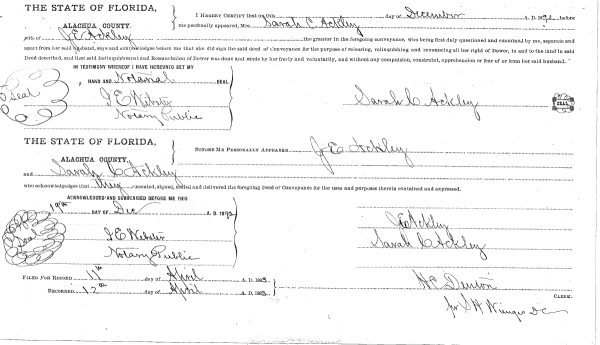 THE STATE OF FLORIDA,
ALACHUA COUNTY.
I HEREBY CERTIFY that on this day of December A. D. 189 before
me personally appeared, Mrs. Sarah C Ackley
wife of J E Ackley the grantor in the foregoing conveyance, who being first duly questioned and examined by me, separate and
apart from her said husband, says and acknowledges before me that she did sign the said deed of Conveyance for the purpose of releasing, relinquishing and renouncing all her right of Dower, in and to the land in said
Deed described, and that said Relinquishment and Renunciation of Dower was done and made by her freely and voluntarily, and without any compulsion, constraint, apprehension or fear of or from her said husband.
IN TESTIMONY WHEREOF I HAVE HEREUNTO SET MY
HAND AND Notarial SEAL
Seal
J E Webster
Notary Public
Sarah C Ackley
SEAL
THE STATE OF FLORIDA,
ALACHUA COUNTY.
BEFORE ME PERSONALLY APPEARED J E Ackley
and Sarah C Ackley
who acknowledges that they executed, signed, sealed and delivered the foregoing Deed of Conveyance for the uses and purposes therein contained and expressed.
ACKNOWLEDGED AND SUBSCRIBED BEFORE ME THIS
DAY OF Dec A. D. 189
Seal
J E Webster
Notary Public
J E Ackley
Sarah C Ackley
FILED FOR RECORD 11th day of April A. D. 189
RECORDED 12th day of April A. D. 189
H C Denton
CLERK.
for S H Wienges D C